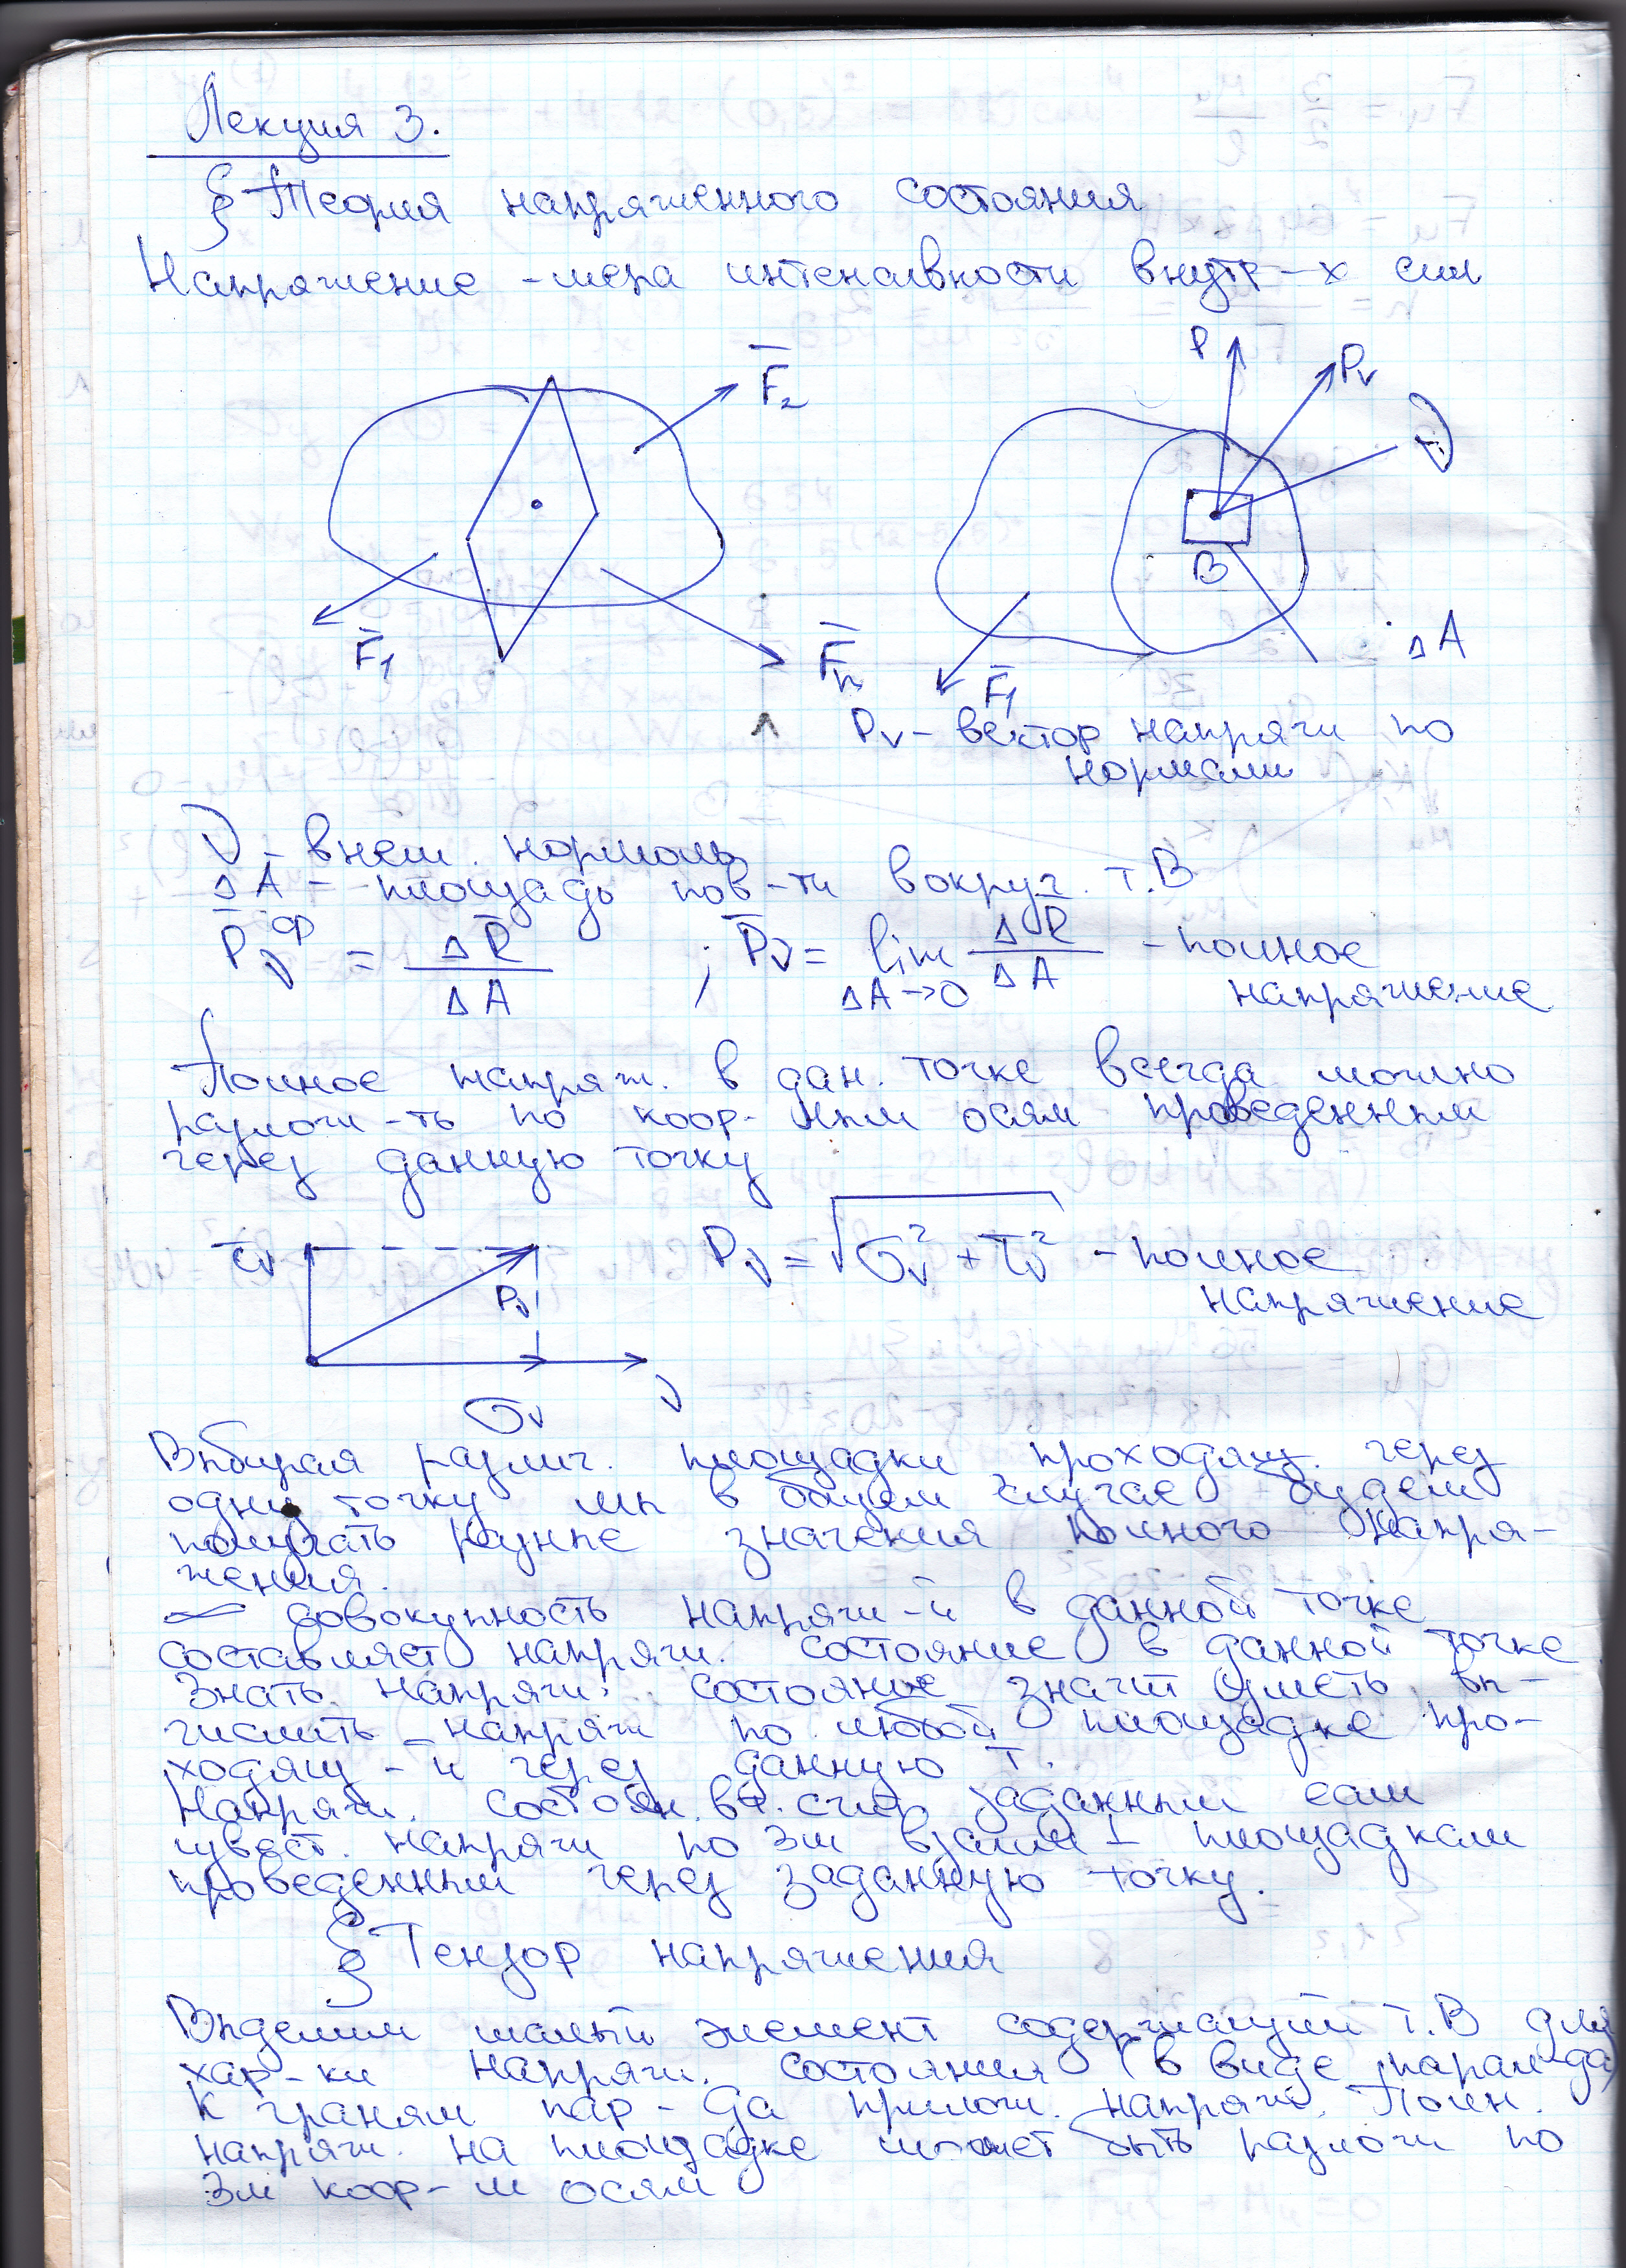 Лекция 3.
§ Теория напряженного состояния
Напряжение - мера интенсивности внутр-х сил
F̄₂
P
Pν
ν
B
F̄₁
F̄n
ΔA
F̄₁
Pν - вектор напряж по
нормали
ν - внеш. нормаль
ΔA - площадь пов-ти вокруг. т. B
P̄ν^ср = ΔR̄ / ΔA ; P̄ν = lim ΔA→0 ΔR̄ / ΔA - полное
напряжение
Полное напряж. в дан. точке всегда можно
разложи-ть по коор-ным осям проведенным
через данную точку
τν
Pν
Pν = √(σν² + τν²) - полное
напряжение
σν
ν
Выбирая различ. площадки проходящ. через
одну точку мы в общем случае будем
получать разные значения полного напря-
жения.
∞ совокупность напряж-й в данной точке
составляет напряж. состояние в данной точке
Знать напряж. состояние значит уметь вы-
числить напряж по любой площадке про-
ходящ-й через данную т.
Напряж. состоян. счит заданным если
извест. напряж по 3м взаимн ⊥ площадкам
проведенным через заданную точку.
§ Тензор напряжения
Выделим малый элемент содержащий т. B для
хар-ки напряж. состояния (в виде парал-да)
К граням пар-да прилож. напряж. Полн.
напряж. на площадке может быть разлож по
3м коор-м осям